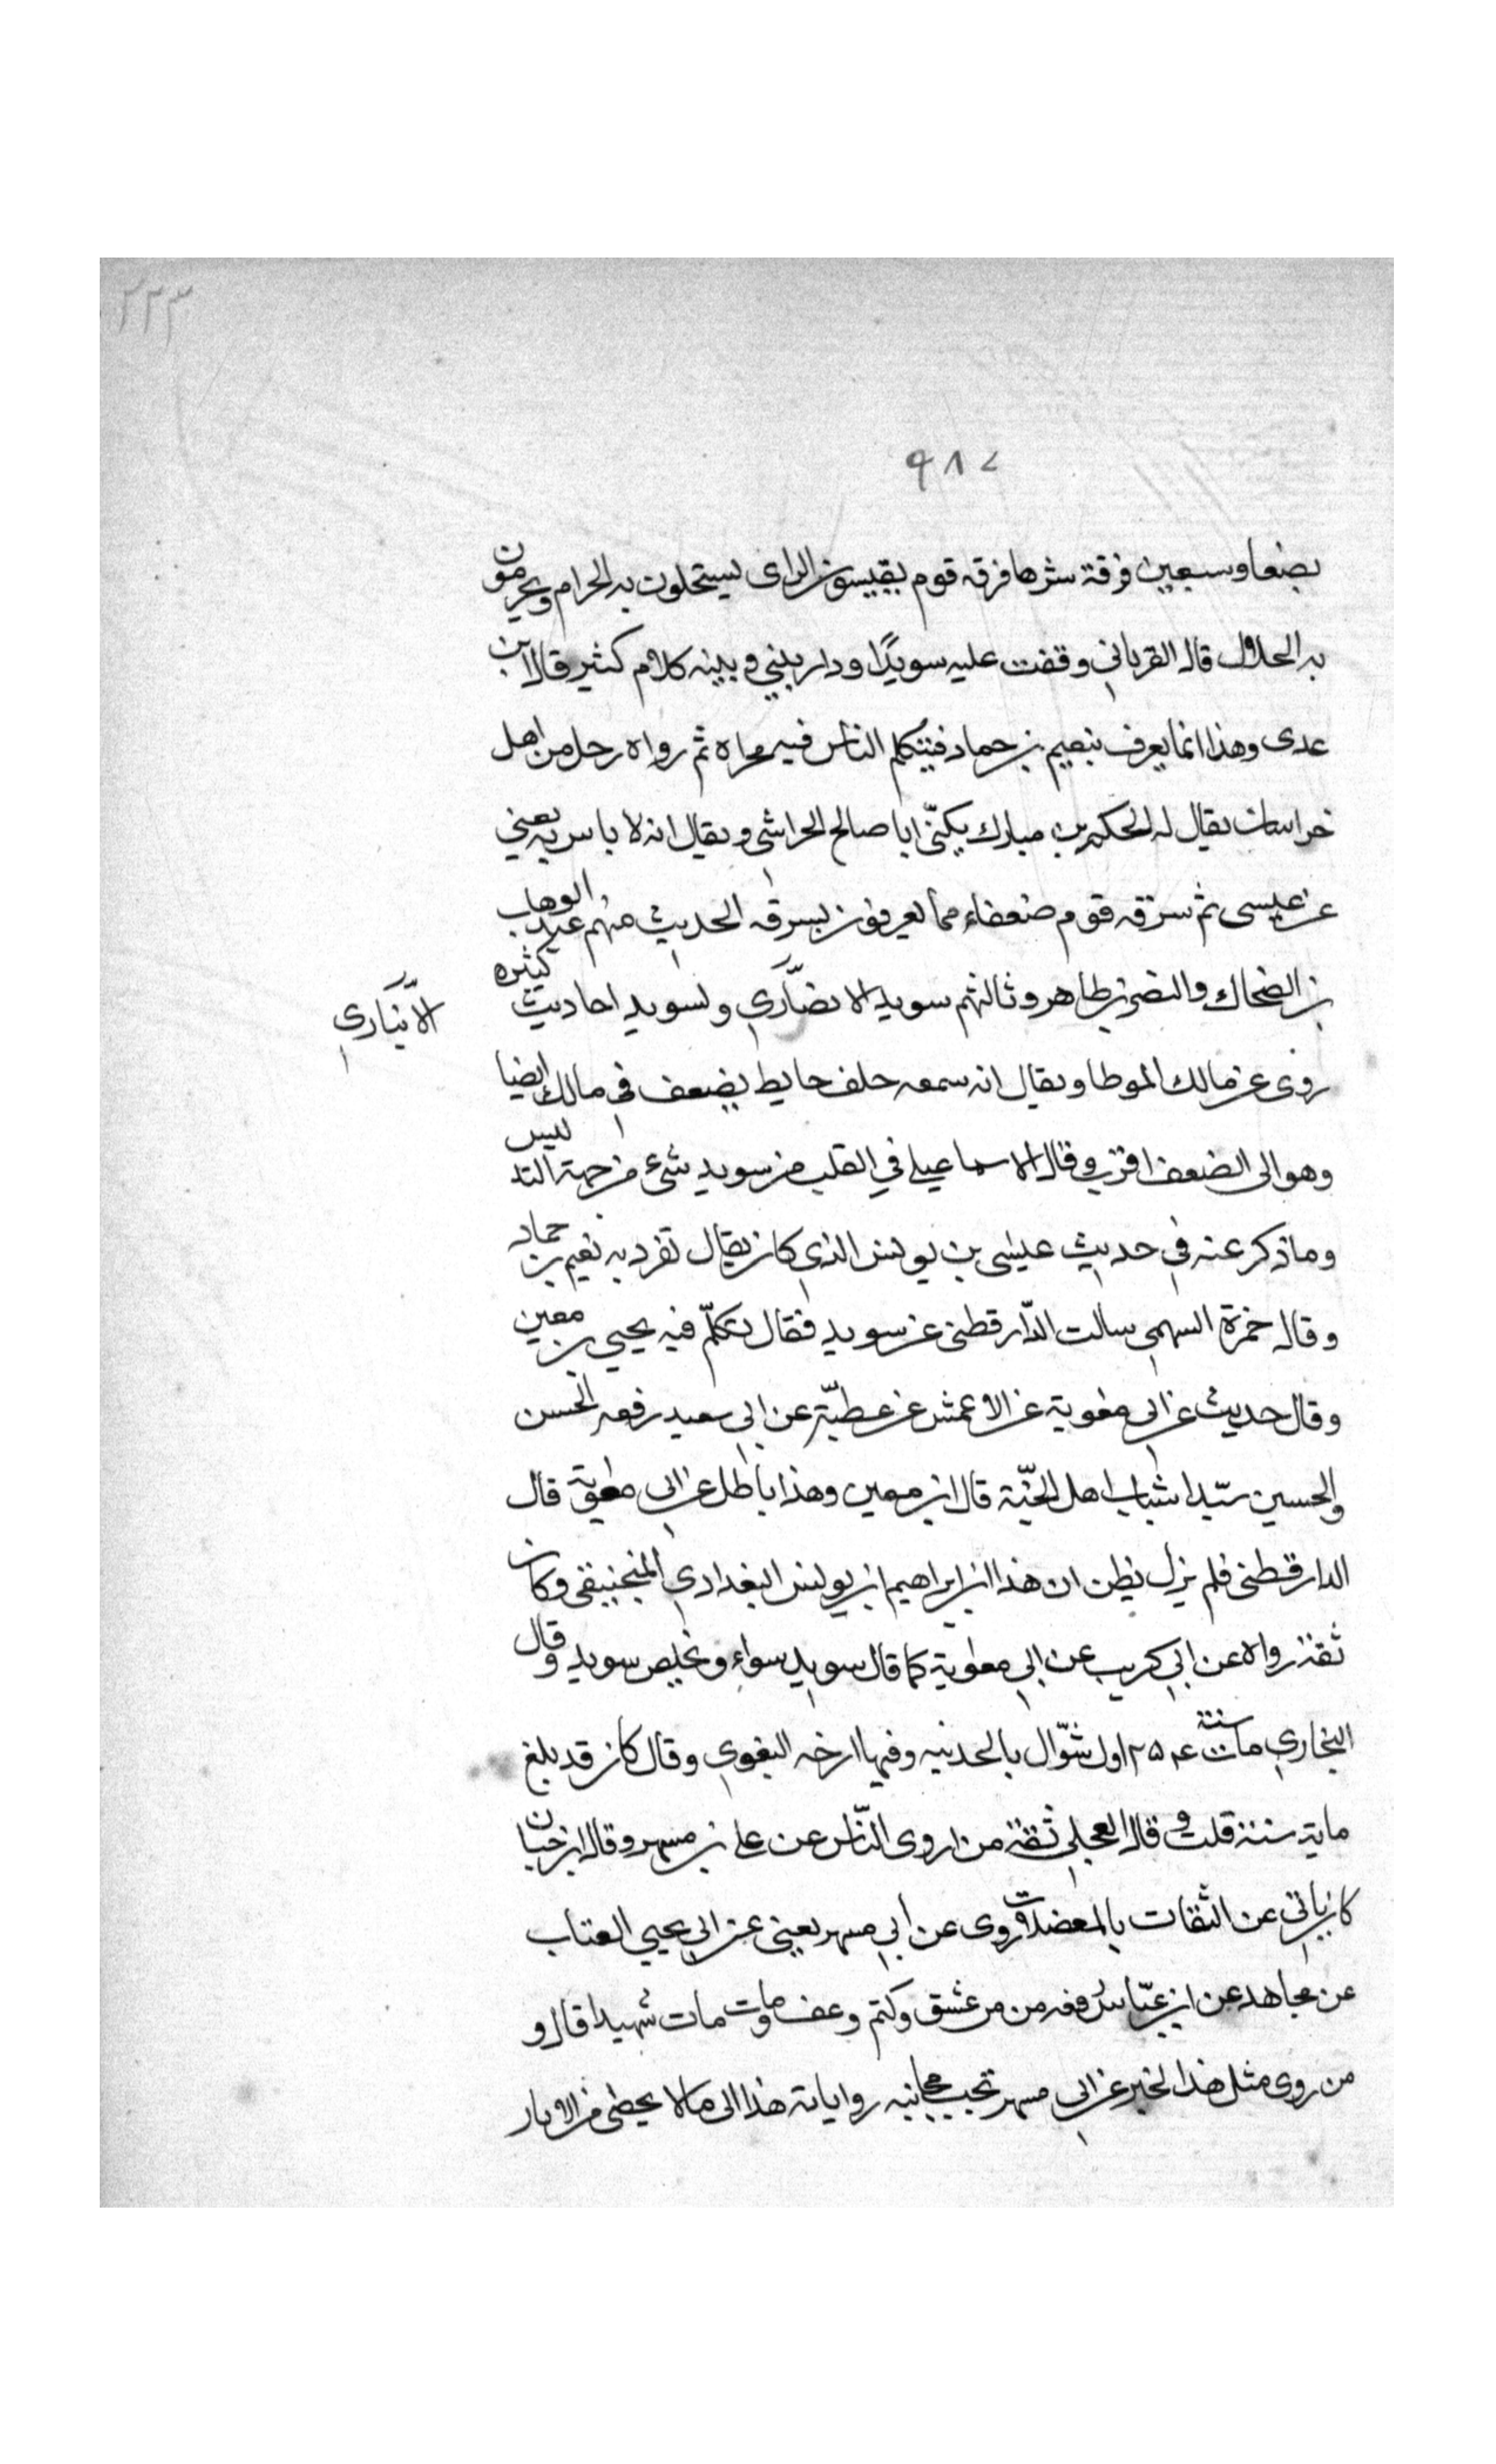 ٢٢٣
٩٨٧
بضعا وسبعين فرقة شرها فرقه قوم يقيسون الراى يستحلون به الحرام ويحرمون
به الحلال قال الفريابي وقفت عليه سويدًا ودار بيني وبينه كلام كثير قال ابن
عدى وهذا انما يعرف بنعيم بن حماد فيتكلم الناس فيه مجراه ثم رواه رجل من اهل
خراسان يقال له الحكم بن مبارك يكنّى ابا صالح الخراشى ويقال انه لا باس به يعني
عن عيسى ثم سرقه قوم ضعفاء مما يعرفون بسرقه الحديث منهم عبد الوهاب
بن الضحاك والنضر بن طاهر وثالثهم سويد الانصاري ولسويد احاديث كثيره
الانباري
روى عن مالك الموطا ويقال انه سمعه خلف حايط يضعف في مالك ايضا
وهو الى الضعف اقرب وقال الاسماعيلي في القلب من سويد شيء من جهة التدليس
وما ذكر عنه في حديث عيسى بن يونس الذي كان يقال تفرد به نعيم بن حماد
وقال حمزة السهمي سالت الدّارقطنى عن سويد فقال تكلّم فيه يحيى بن معين
وقال حديث عن ابي معوية عن الاعمش عن عطيّة عن ابي سعيد رفعه الحسن
والحسين سيّدا شباب اهل الجنّة قال ابن معين وهذا باطل عن ابي معوية قال
الدارقطنى فلم يزل يظن ان هذا ابن ابراهيم ابن يونس البغدادي المنجنيقى وكان
ثقة رواه عن ابي كريب عن ابي معوية كما قال سويد سواء وتخلص سويد وقال
البخاري مات سنة ٢٥٤ اول شوّال بالحديثه وفيها ارخه البغوي وقال كان قد بلغ
ماية سنة قلت وقال العجلي ثقة من اروى النّاس عن علي بن مسهر وقال ابن حبان
كان ياتي عن الثقات بالمعضلات روى عن ابي مسهر يعني عن ابي يحيى القتات
عن مجاهد عن ابن عبّاس رفعه من من عشق وكتم وعف ومات مات شهيدا قال و
من روى مثل هذا الخبر عن ابي مسهر تجب مجانبه رواياته هذا الى مالا يحصى من الاثار